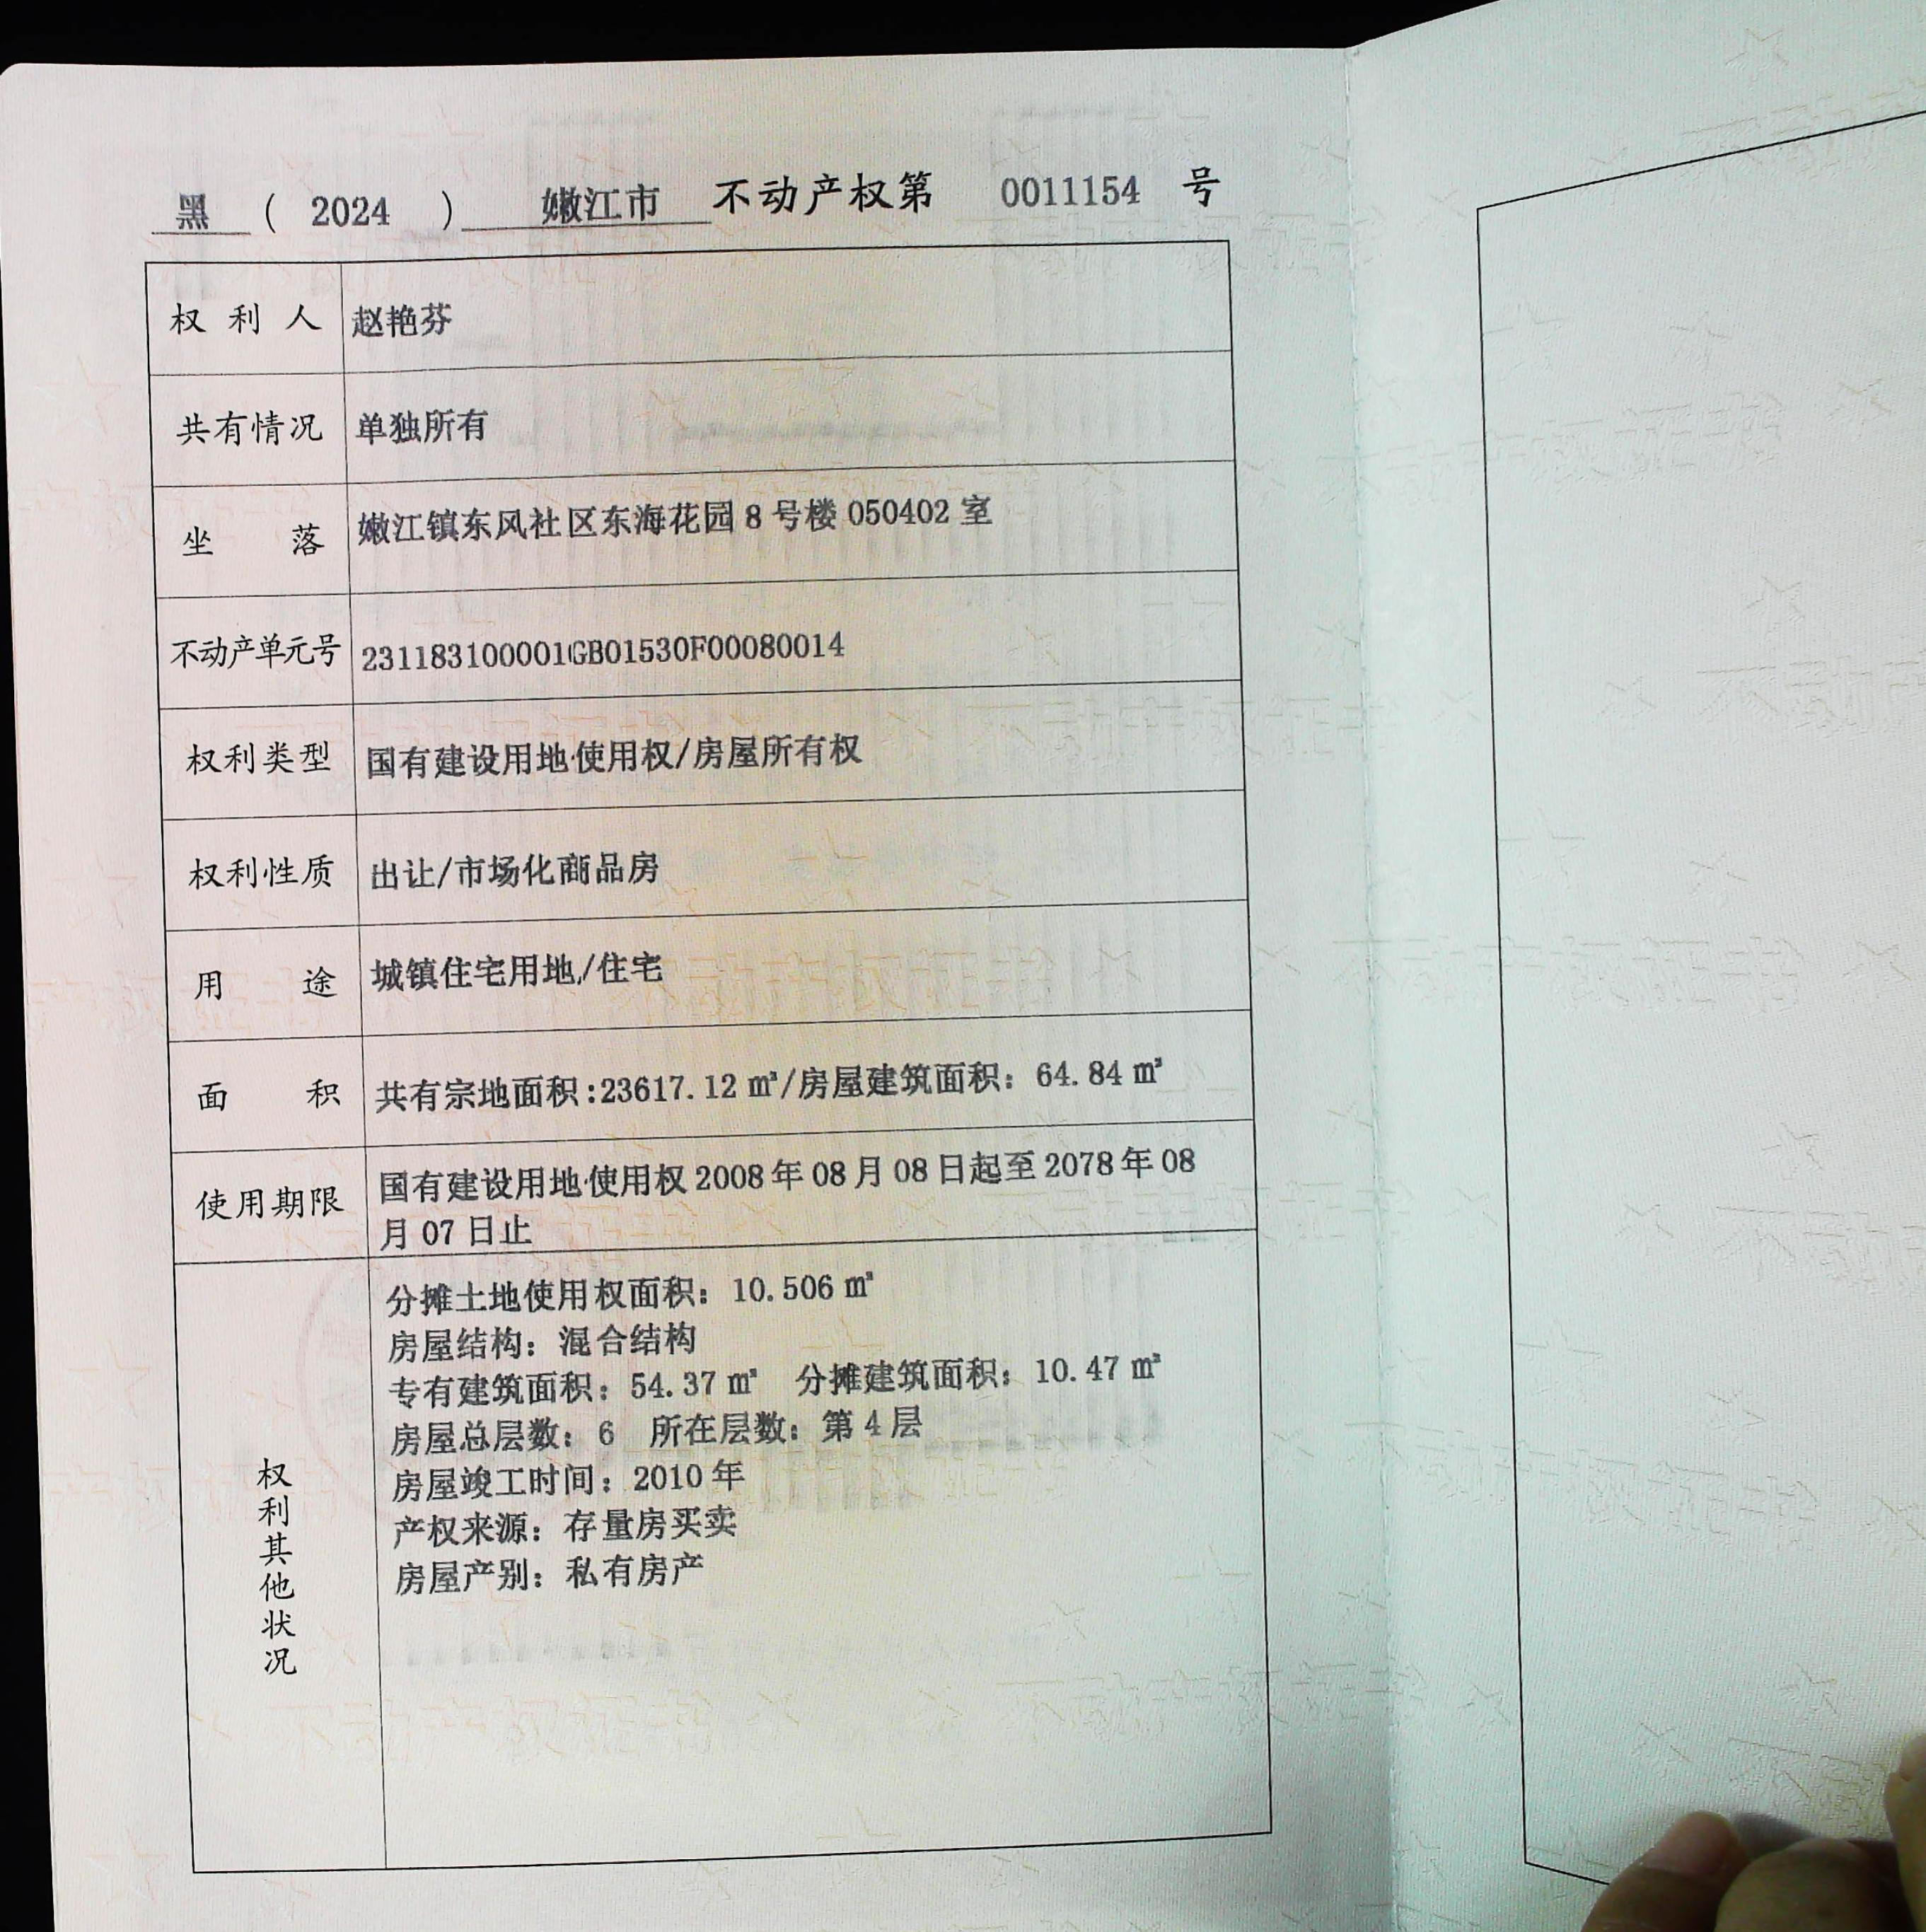 黑 ( 2024 ) 嫩江市 不动产权第 0011154 号
权利人 赵艳芬
共有情况 单独所有
坐落 嫩江镇东风社区东海花园 8 号楼 050402 室
不动产单元号 231183100001GB01530F00080014
权利类型 国有建设用地使用权/房屋所有权
权利性质 出让/市场化商品房
用途 城镇住宅用地/住宅
面积 共有宗地面积:23617.12 ㎡/房屋建筑面积：64.84 ㎡
使用期限 国有建设用地使用权 2008 年 08 月 08 日起至 2078 年 08
月 07 日止
权利其他状况
分摊土地使用权面积：10.506 ㎡
房屋结构：混合结构
专有建筑面积：54.37 ㎡ 分摊建筑面积：10.47 ㎡
房屋总层数：6 所在层数：第 4 层
房屋竣工时间：2010 年
产权来源：存量房买卖
房屋产别：私有房产